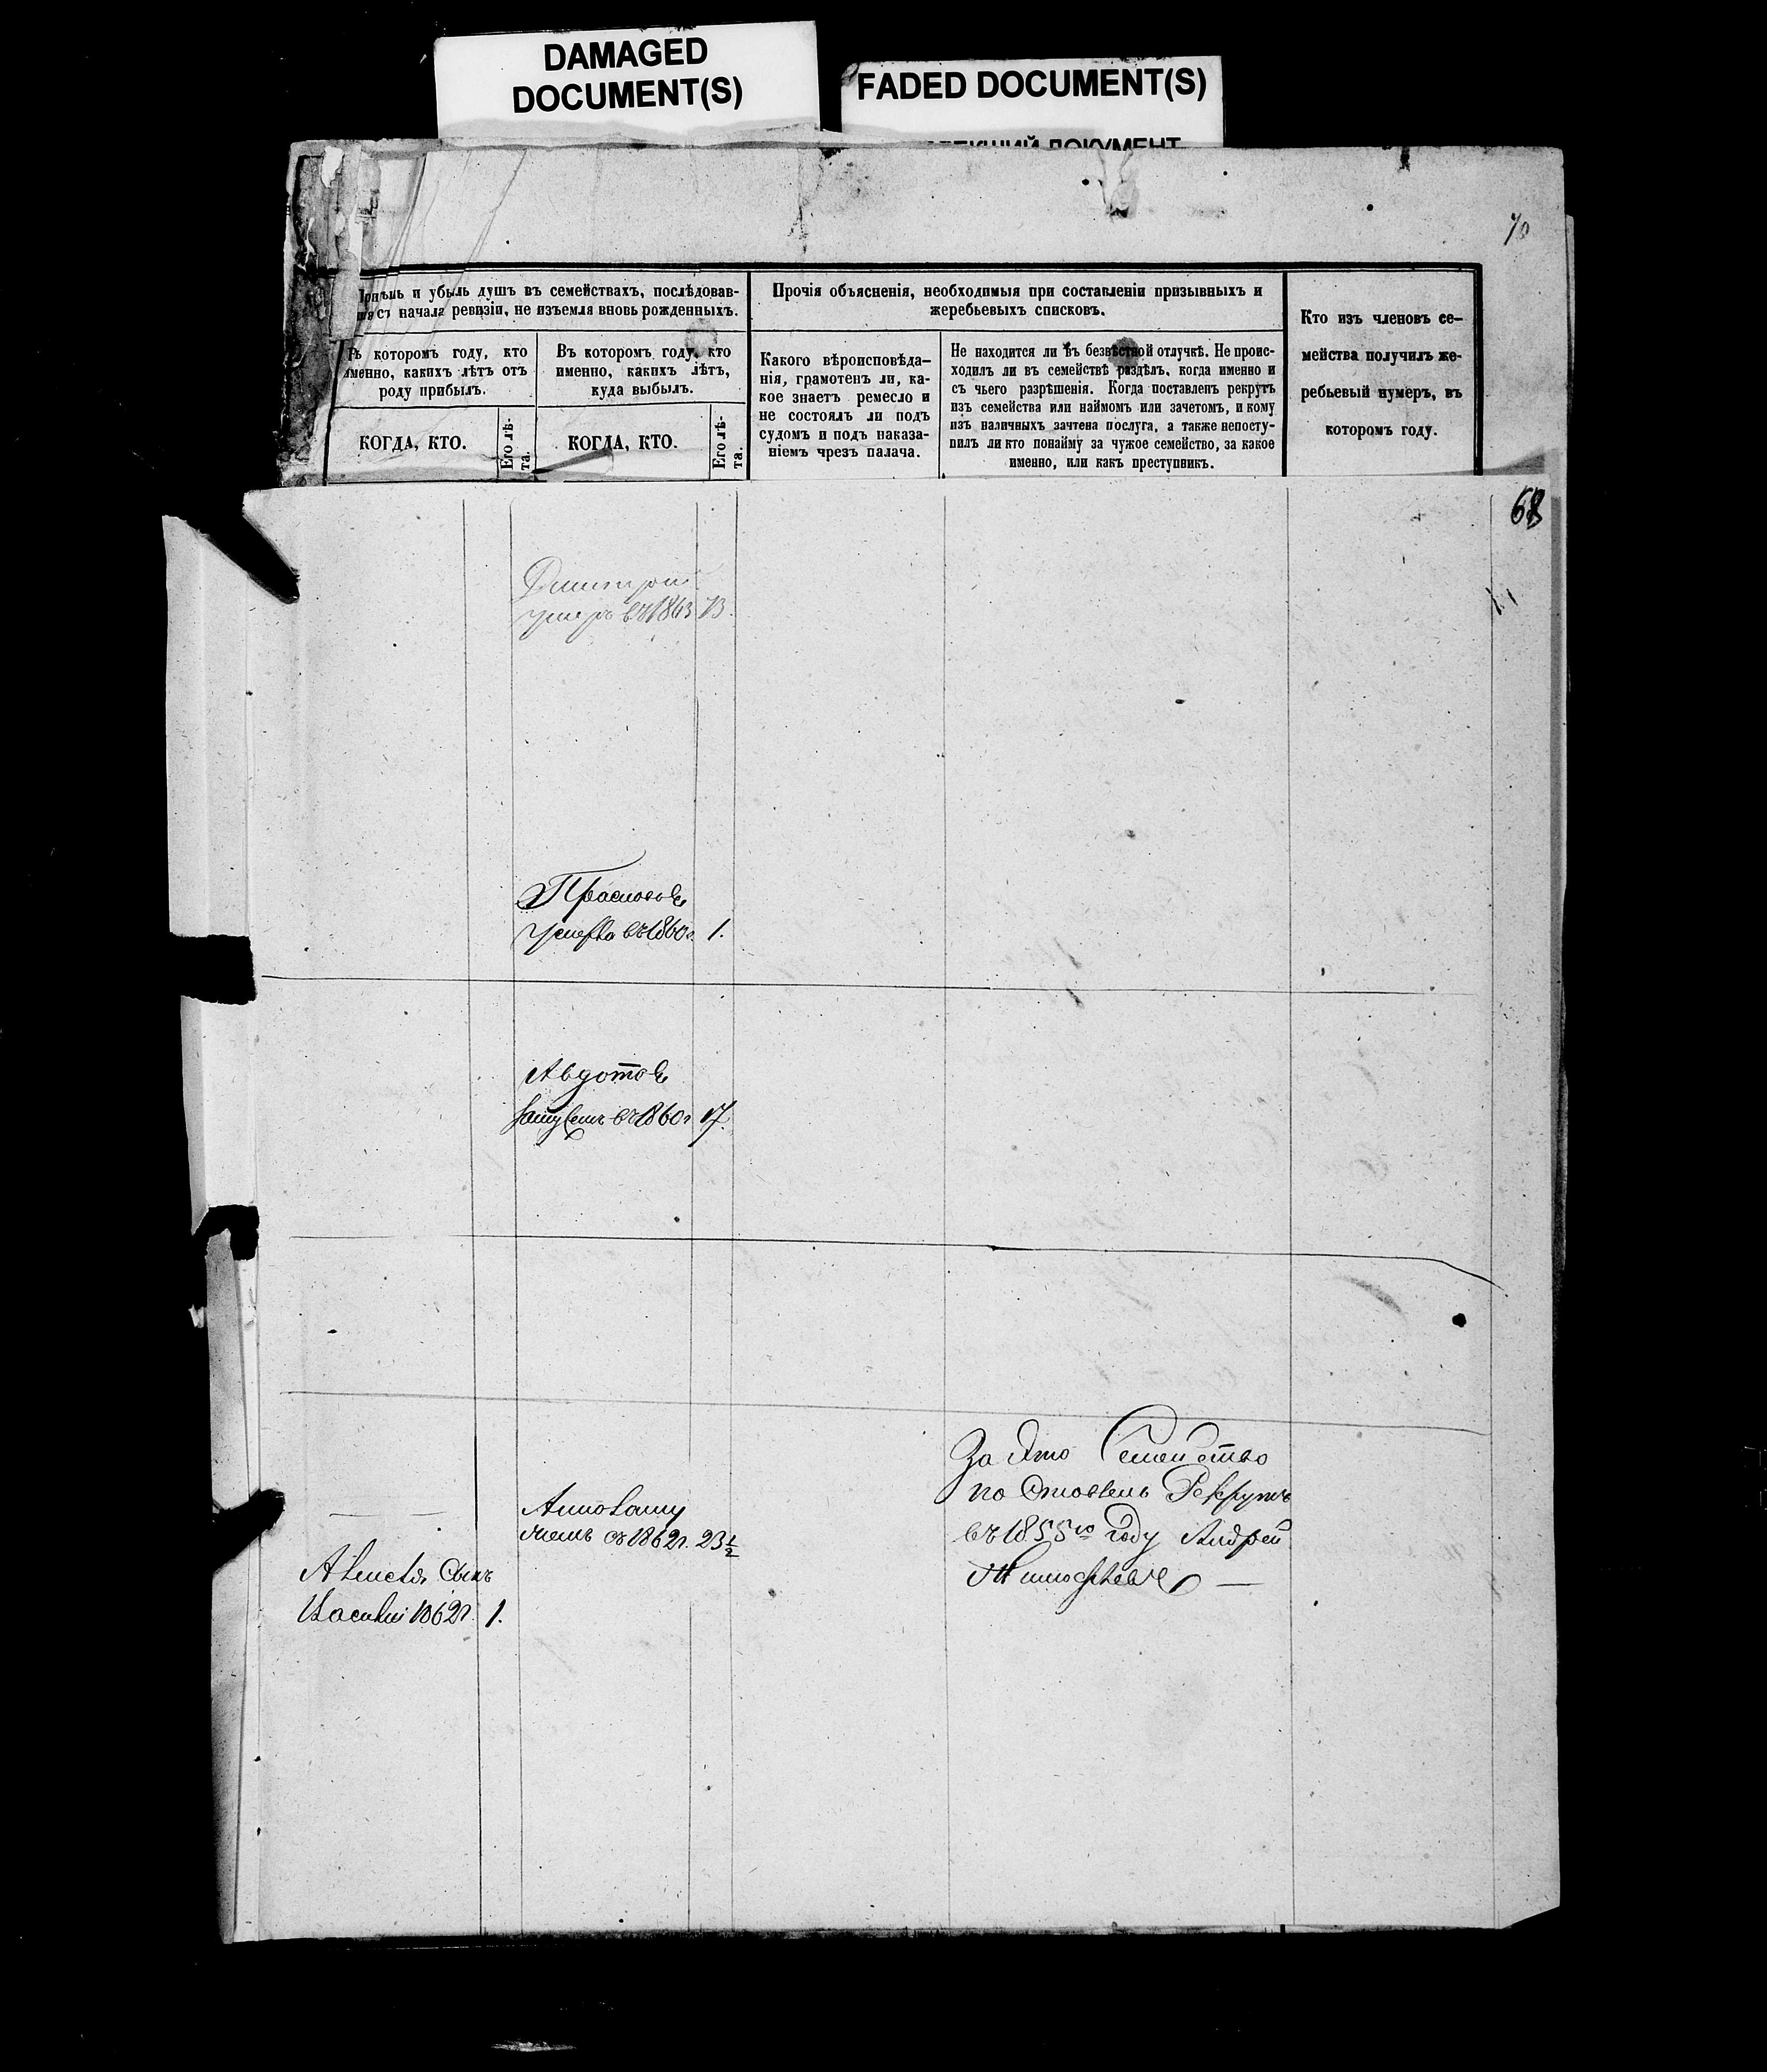 DAMAGED
DOCUMENT(S)
FADED DOCUMENT(S)
ДОКУМЕНТ
70
и убыль душъ въ семействахъ, послѣдовав-
съ начала ревизіи, не изъемля вновь рожденныхъ.
Въ которомъ году, кто
именно, какихъ лѣтъ отъ
роду прибылъ.
КОГДА, КТО.
Его лѣ-
та.
Въ которомъ году, кто
именно, какихъ лѣтъ,
куда выбылъ.
КОГДА, КТО.
Его лѣ-
та.
Прочія объясненія, необходимыя при составленіи призывныхъ и
жеребьевыхъ списковъ.
Какого вѣроисповѣда-
нія, грамотенъ ли, ка-
кое знаетъ ремесло и
не состоялъ ли подъ
судомъ и подъ наказа-
ніемъ чрезъ палача.
Не находится ли въ безвѣстной отлучкѣ. Не проис-
ходилъ ли въ семействѣ раздѣлъ, когда именно и
съ чьего разрѣшенія. Когда поставленъ рекрутъ
изъ семейства или наймомъ или зачетомъ, и кому
изъ наличныхъ зачтена послуга, а также непосту-
пилъ ли кто понайму за чужое семейство, за какое
именно, или какъ преступникъ.
Кто изъ членовъ се-
мейства получилъ же-
ребьевый нумеръ, въ
которомъ году.
68
Дмитрій
умеръ въ 1863 73.
Прасковья
Умерла въ 1860г. 1.
Авдотья
въ 1860г 17.
За Это Семейство
по Ставленъ Рекрутъ
въ 1855го Году Андрей
Тимофѣевъ —
Анна Заму
жемъ съ 1862г. 23½
Алексѣя Сынъ
Василій 1862г. 1.